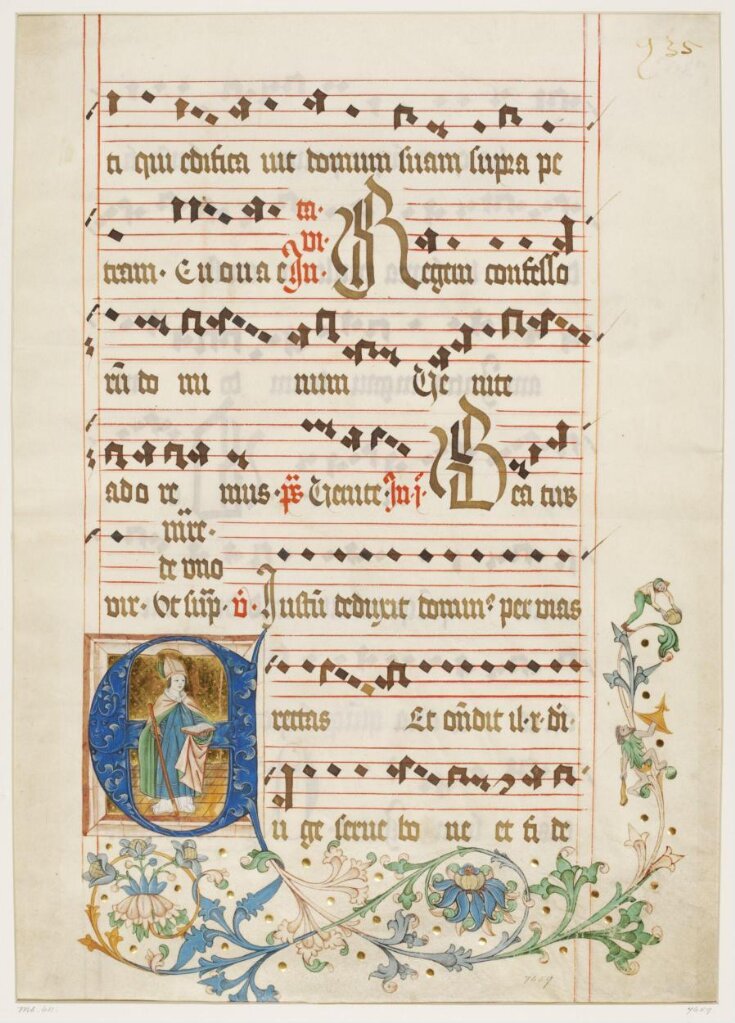 435
ti qui edifica uit domum suam supra pe
tram. Euouae In. ui ta. Regem confesso
rū do mi num Uenite
ado re mus. pš Uenite. In j. Bea tus
vir. Ut sup̄. mr̄e. de uno v̄. Justū deduxit domin⁹ per uias
rectas Et on̄dit il. r. di.
Eu ge serue bo ne et fi de
7459
Ms. 411.
7459